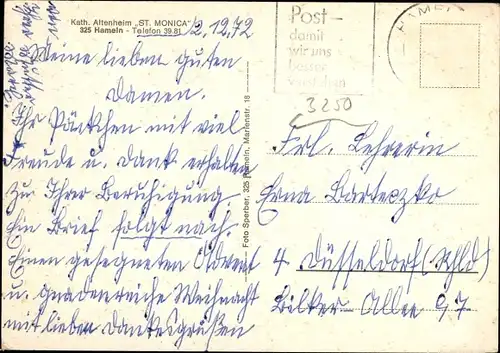 Kath. Altenheim „ST. MONICA"
325 Hameln - Telefon 39 81
2.12.72
Meine lieben guten
Damen.
Ihr Päckchen mit viel
Freude u. Dank erhalten
Zu Ihrer Beruhigung.
Ein Brief folgt nach.
Einen gesegneten Advent
u. gnadenreiche Weihnacht
mit lieben Dankesgrüßen
Foto Sperber, 325 Hameln, Marienstr. 18
Post-
damit
wir uns
besser
verstehen
HAMEL
3250
Frl. Lehrerin
Erna Barteczko
4 Düsseldorf (Rhld)
Bilker-Allee 97